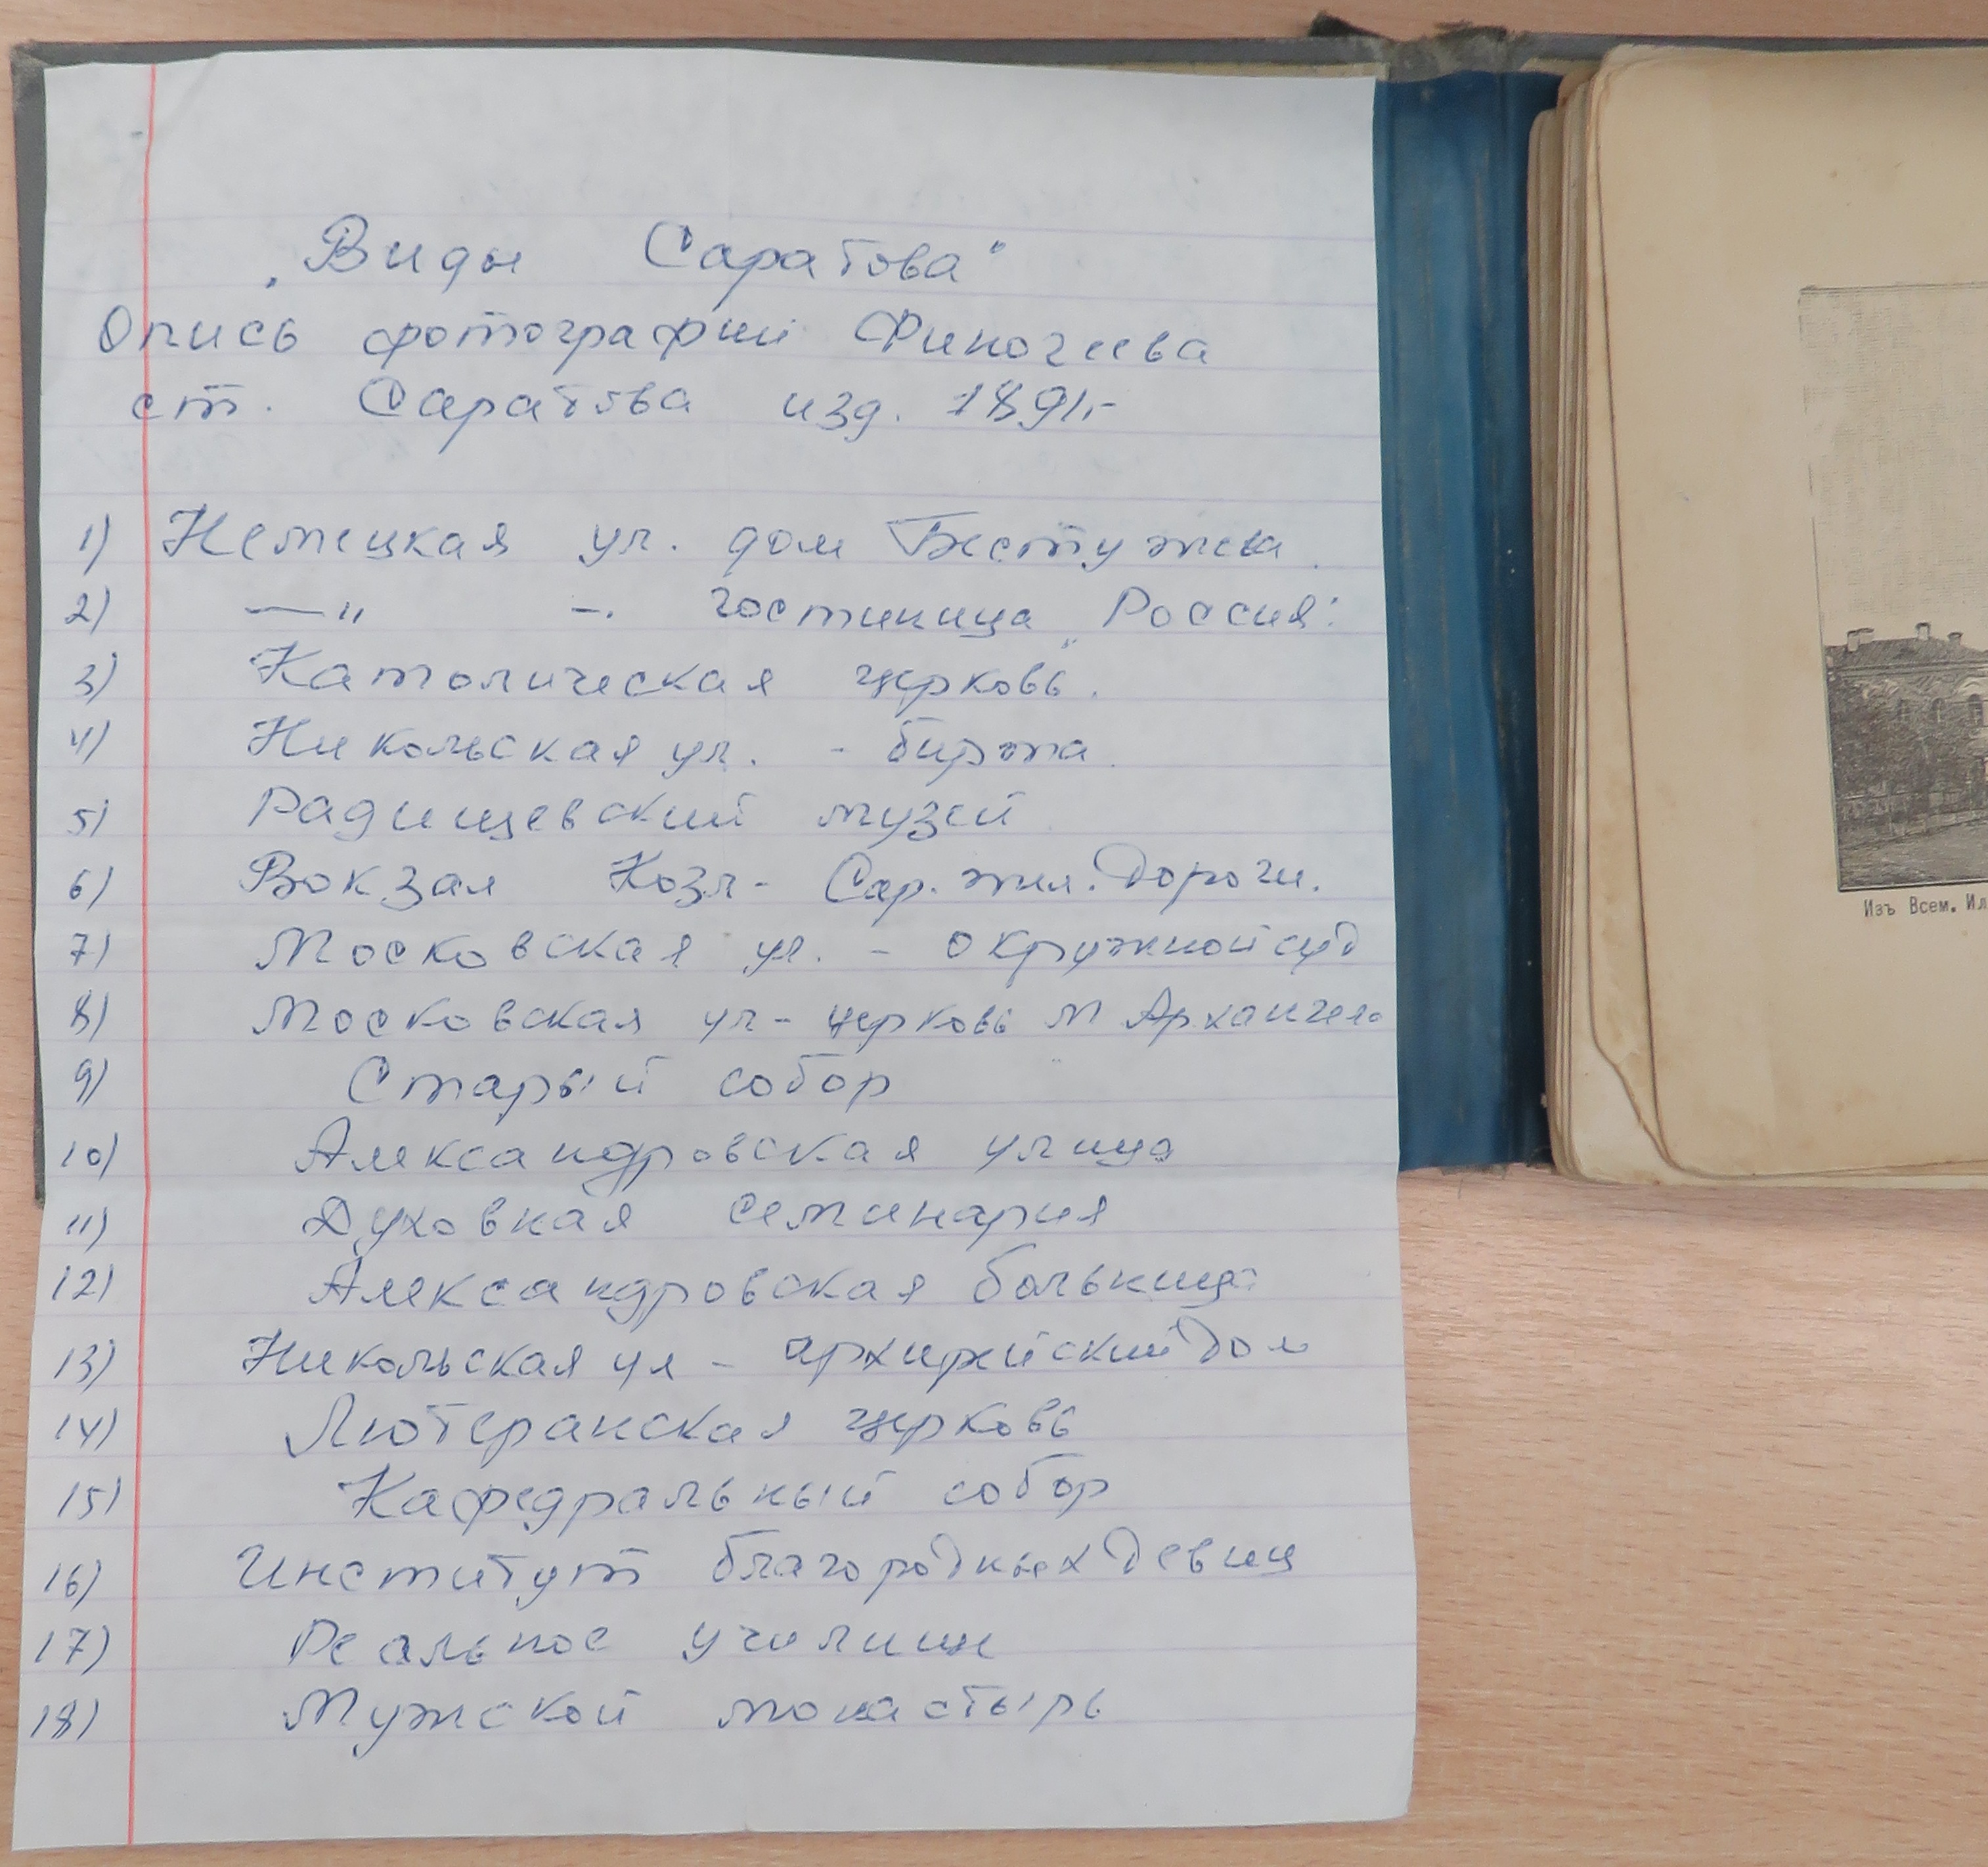 „Виды Саратова"
Опись фотографий Финогеева
ст. Саратова изд. 1891г
1) Немецкая ул. дом
2) —"— гостиница „Россия"
3) Католическая церковь.
4) Никольская ул. - биржа.
5) Радищевский музей
6) Вокзал Козл- Сар. жел. дороги.
7) Московская ул. - окружной суд
8) Московская ул- церковь М Архангела
9) Старый собор
10) Александровская улица
11) Духовная семинария
12) Александровская больница
13) Никольская ул - архирейский дом
14) Лютеранская церковь
15) Кафедральный собор
16) Институт благородных девиц
17) Реальное училище
18) Мужской монастырь
Изъ Всем. Ил